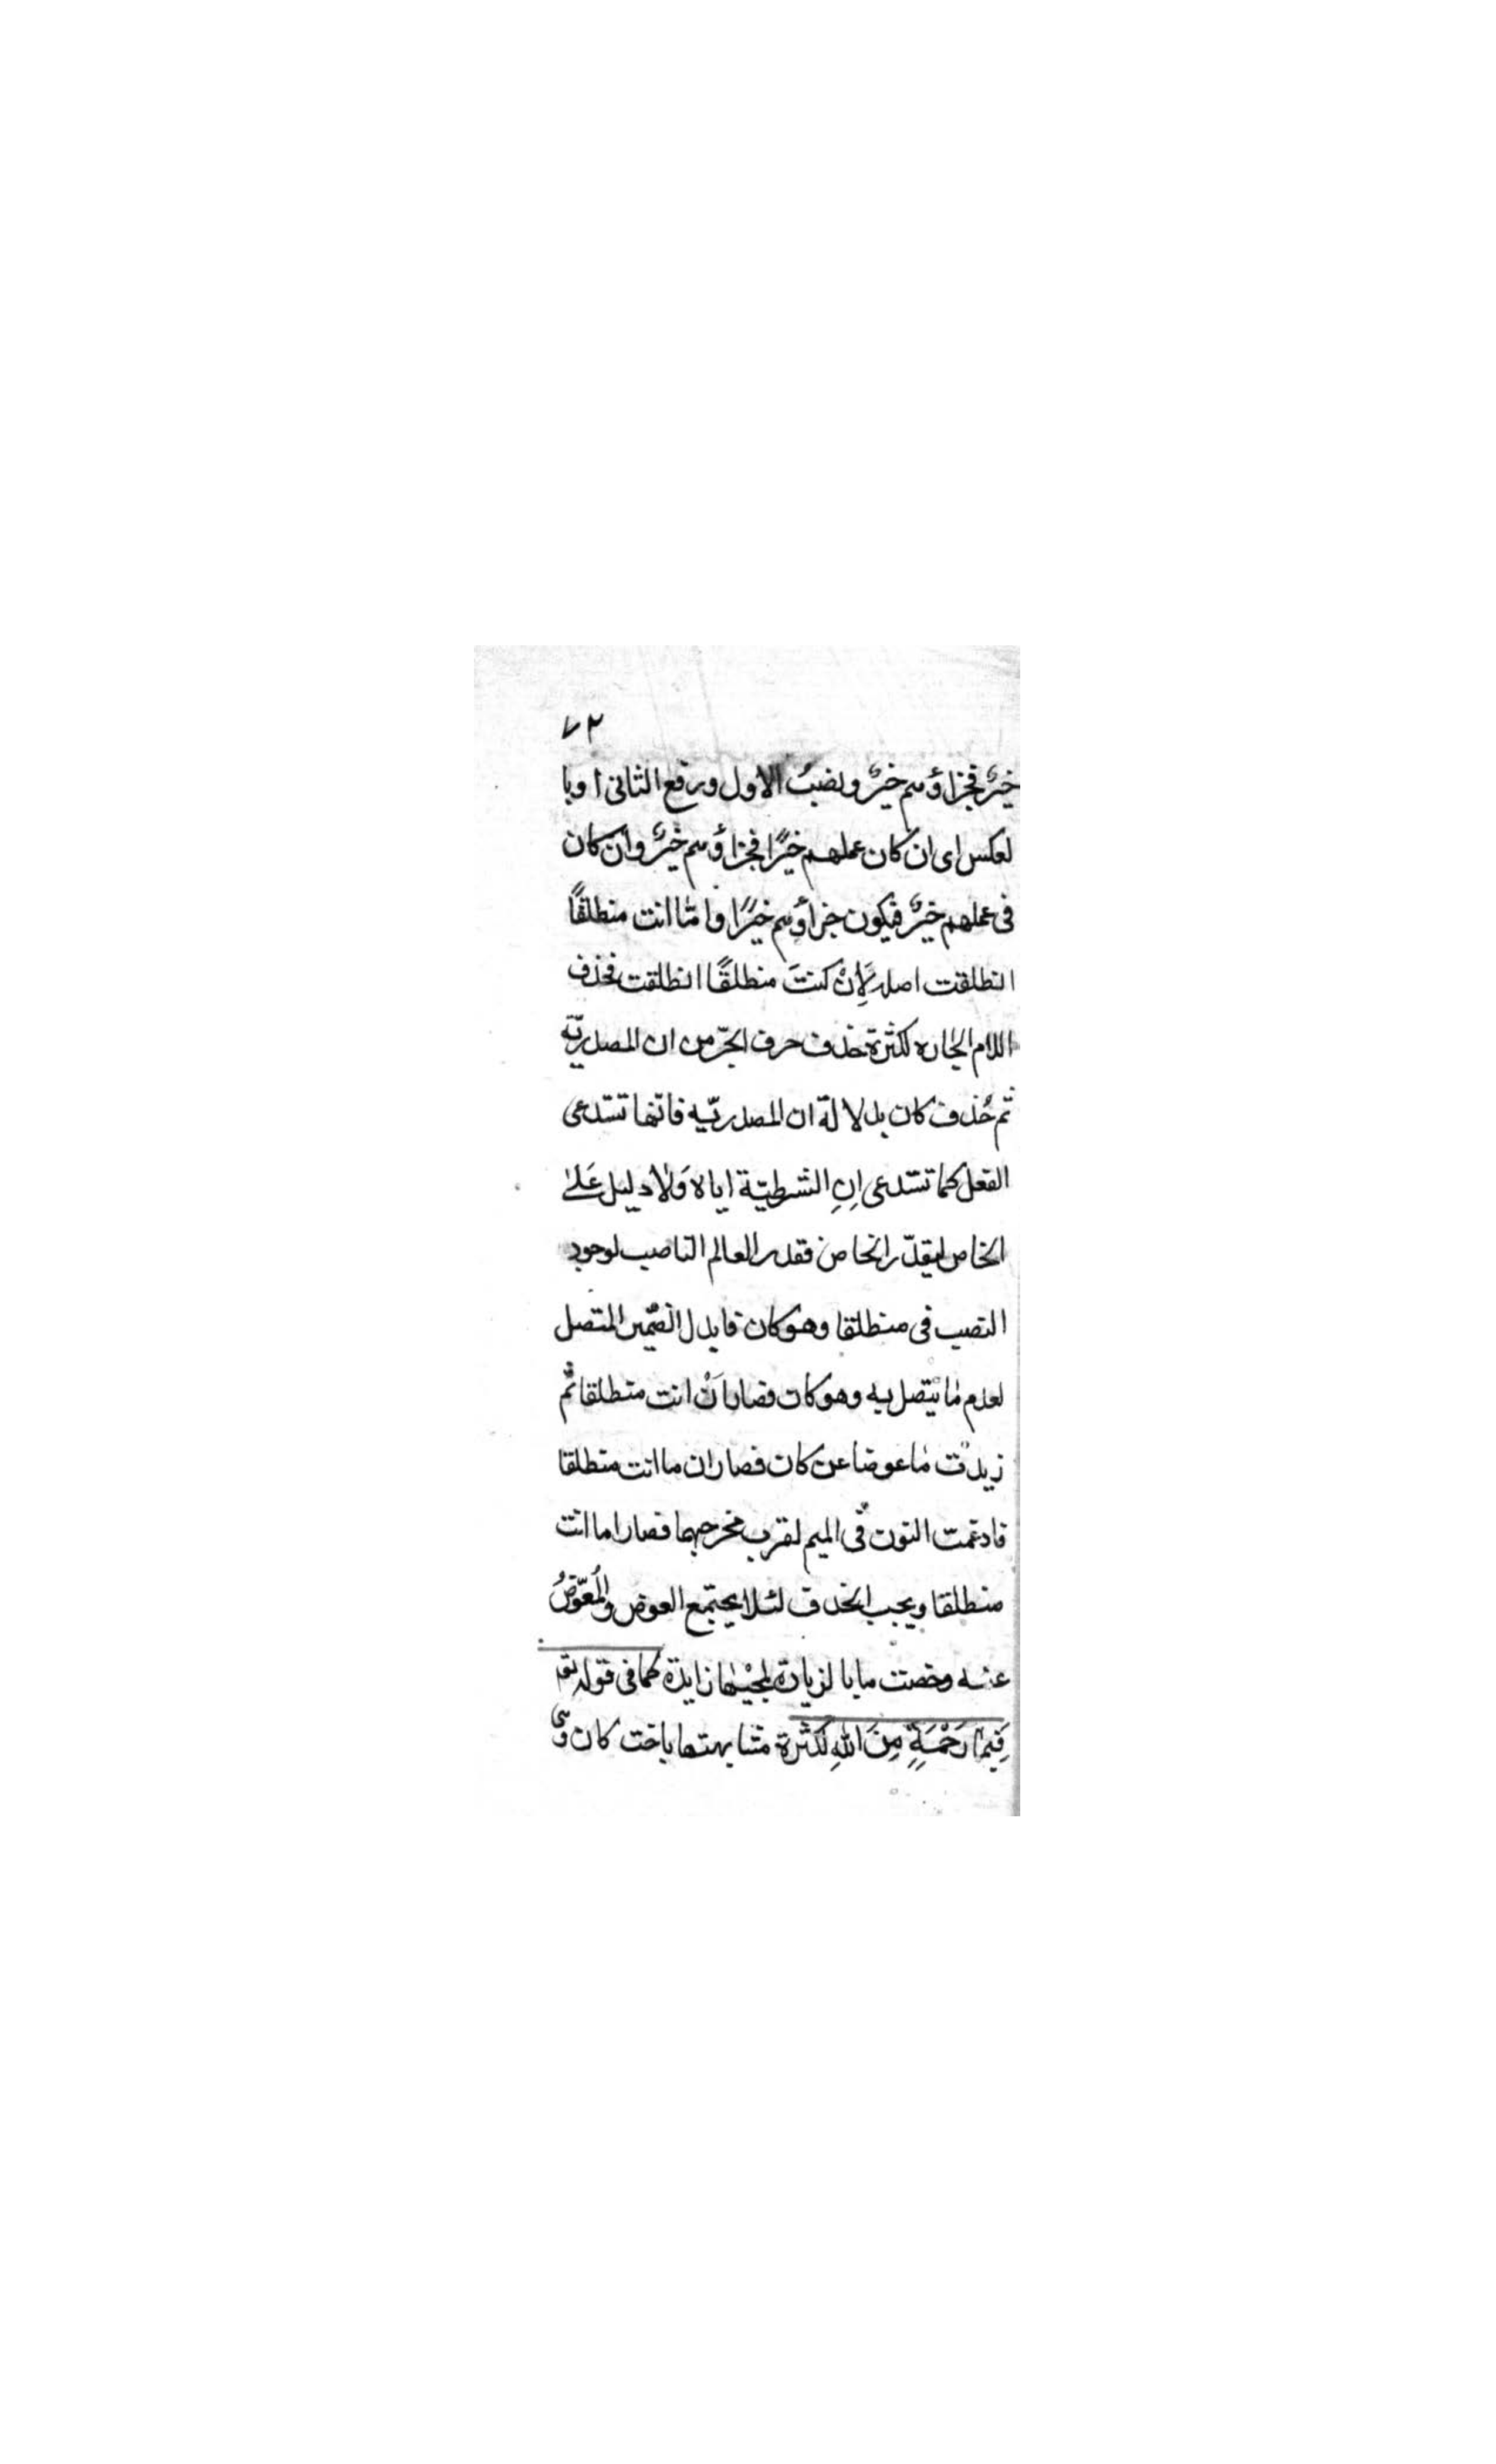 ٧٢
خيرٌ فجزاؤهم خيرٌ ونصبُ الاول ورفع الثانى اوبا
لعكس اى ان كان عملهم خيرًا فجزاؤهم خيرٌ وان كان
فى عملهم خيرٌ فيكون جزاؤهم خيرًا وامّا انت منطلقًا
انطلقت اصله لِاَنْ كنتَ منطلقًا انطلقت فحذف
اللام الجاره لكثرة حذف حرف الجرّ من ان المصدريّه
ثم حُذف كان بدلالة ان المصدريّه فانّها تستدعى
الفعل كما تستدعى اِنِ الشرطيّة اياه وَلا دليل عَلىٰ
الخاص ليقدّر الخاص فقدر العالم الناصب لوجود
النصب فى منطلقا وهو كان فابدل الضمير المتصل
لعدم ما يتصل به وهو كان فصار اَنْ انت منطلقا ثم
زيدت ما عوضا عن كان فصار ان ما انت منطلقا
فادغمت النون فى الميم لقرب مخرجهما فصار اما انت
منطلقا ويجب الحذف لئلا يجتمع العوض والمُعوّضُ
عنه وخصت ما بالزيادة لمجيئها زايدة كما فى قوله تعـ
فَبِمٰا رَحْمَةٍ مِنَ اللهِ لكثرة مشابهتها باخت كان وهى